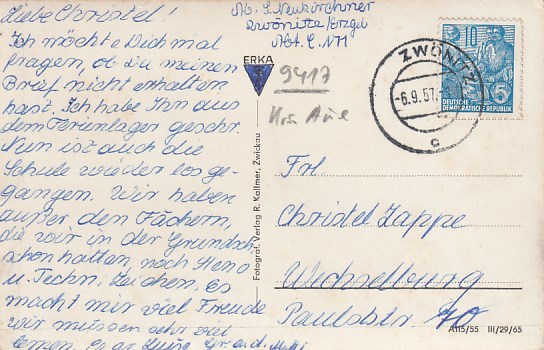 Liebe Christel!
Ich möchte Dich mal
fragen, ob du meinen
Brief nicht erhalten
hast. Ich habe ihn aus
dem Ferienlager geschr.
Nun ist auch die
Schule wieder los ge-
gangen. Wir haben
außer den Fächern,
die wir in der Grundsch.
schon hatten, noch Steno
u. Techn. Zeichen. Es
macht mir viel Freude
wir müssen sehr viel
lernen. Es gr.
Abs. Neukirchner
Zwönitz/Erzgeb
ERKA
9417
Krs Aue
ZWÖNITZ
-6.9.57.
c
10
5
DEUTSCHE
DEMOKRATISCHE REPUBLIK
Fotograf. Verlag R. Kallmer, Zwickau
Frl.
Christel Zappe
Wechselburg
Paulsdstr. 70
A 115/55 III/29/65